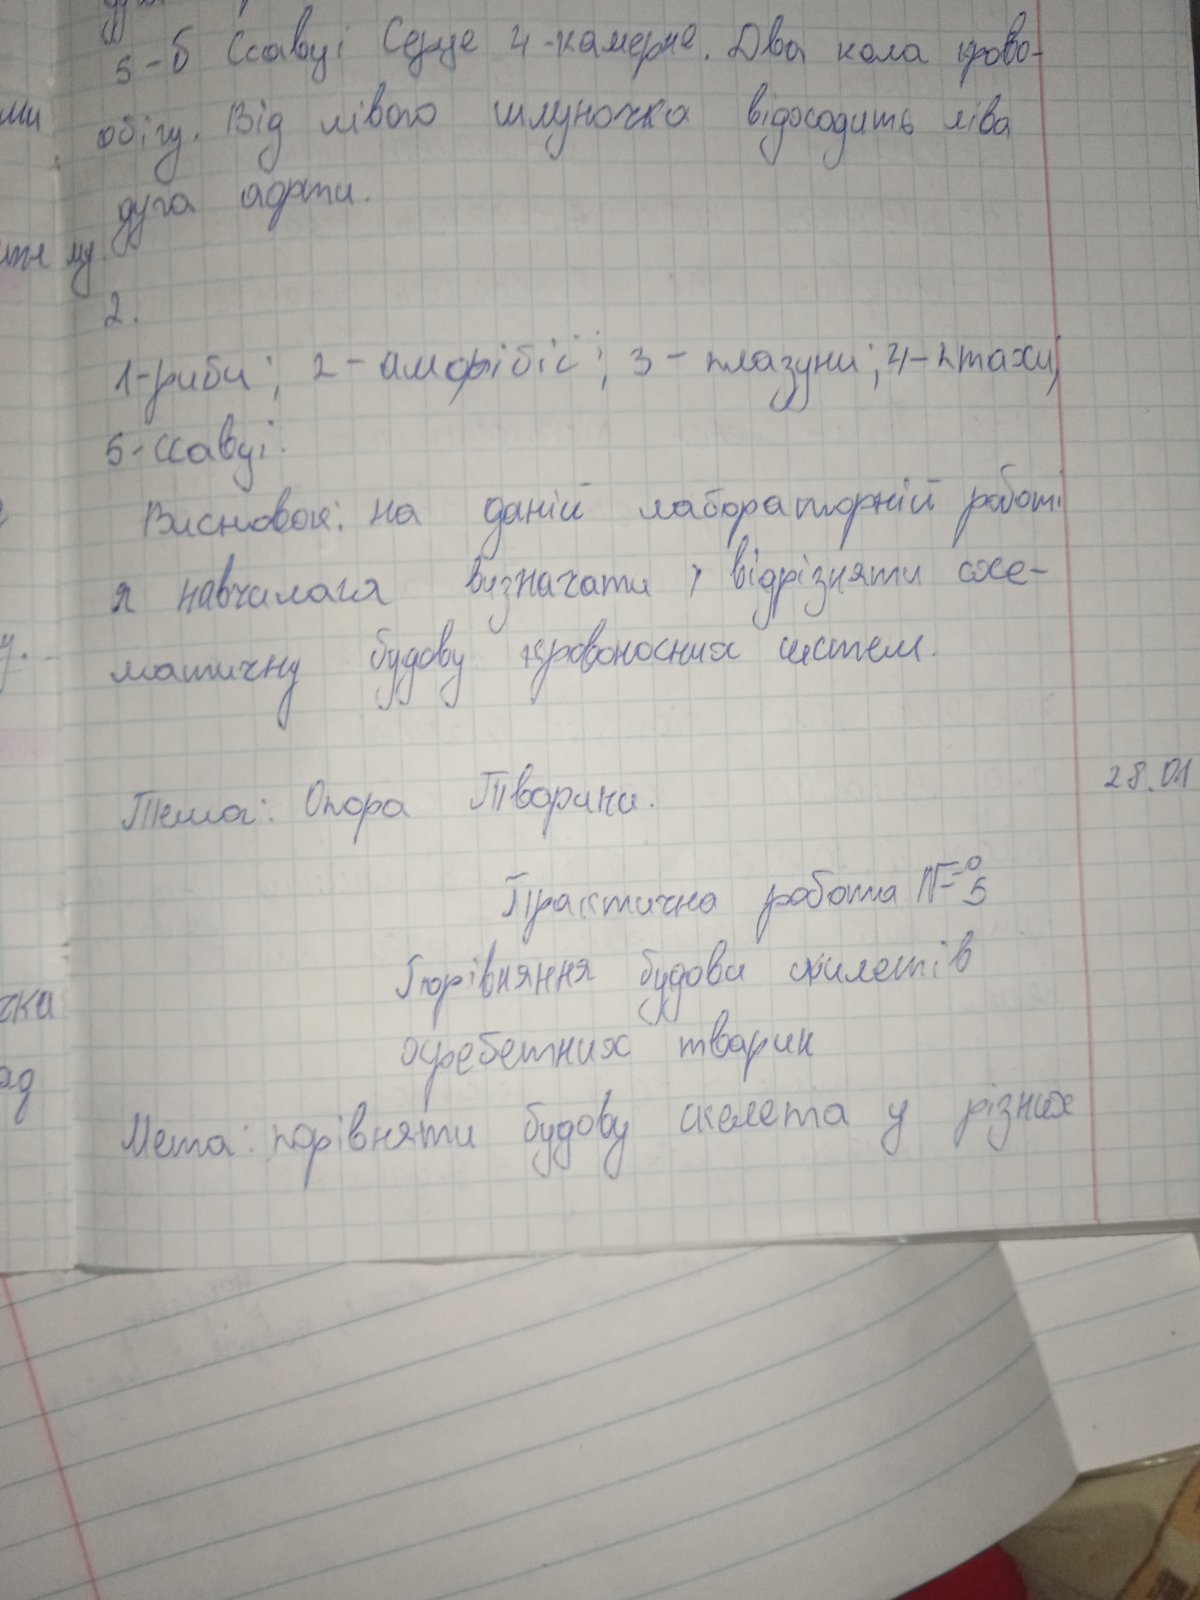 5-б Ссавці Серце 4-камерне. Два кола крово-
обігу. Від лівого шлуночка відоходить ліва
дуга аорти.
2.
1-риби; 2-амфібії; 3-плазуни; 4-птахи;
5-Ссавці.
Висновок: на даній лабораторній роботі
я навчилася визначати і відрізняти схе-
матичну будову кровоносних систем.
28.01
Тема: Опора Тварини.
Практична робота № 5
Порівняння будови скилетів
хребетних тварин
Мета: порівняти будову скелета у різних
ми
му.
у.
чка
ад